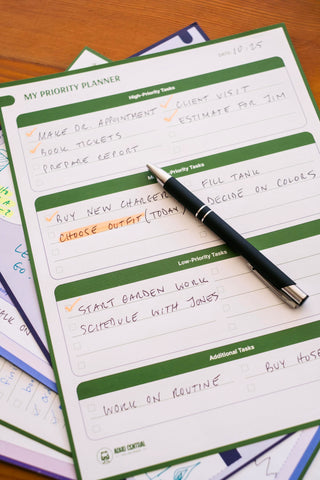 MY PRIORITY PLANNER
DATE: 10.25
High-Priority Tasks
MAKE DR. APPOINTMENT
BOOK TICKETS
PREPARE REPORT
CLIENT VISIT
ESTIMATE FOR JIM
Tasks
BUY NEW CHARGER
CHOOSE OUTFIT (TODAY)
FILL TANK
DECIDE ON COLORS
Low-Priority Tasks
START GARDEN WORK
SCHEDULE WITH JONES
Additional Tasks
WORK ON ROUTINE
BUY HOSE